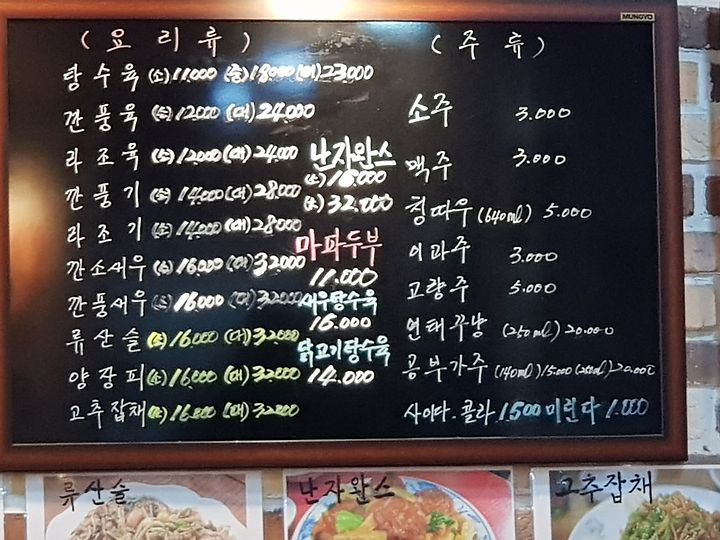 MUNGYO
( 요 리 류 )
탕 수 육 (소) 11.000 (중) 18.000 (대) 23.000
깐 풍 육 (소) 12.000 (대) 24.000
라 조 육 (소) 12.000 (대) 24.000
깐 풍 기 (소) 14.000 (대) 28.000
라 조 기 (소) 14.000 (대) 28.000
깐소새우 (소) 16.000 (대) 32.000
깐풍새우 (소) 16.000 (대) 32.000
류 산 슬 (소) 16.000 (대) 32.000
양 장 피 (소) 16.000 (대) 32.000
고추잡채 (소) 16.000 (대) 32.000
난자완스
(소) 16.000
32.000
마파두부
11.000
새우탕수육
15.000
닭고기탕수육
14.000
( 주 류 )
소주 3.000
맥주 3.000
청따우 (640ml) 5.000
이과주 3.000
고량주 5.000
연태꾸냥 (250ml) 20.000
공부가주 (140ml) 15.000 (250ml) 20.000
사이다. 콜라 1.500 미린다 1.000
류산슬
난자완스
고추잡채